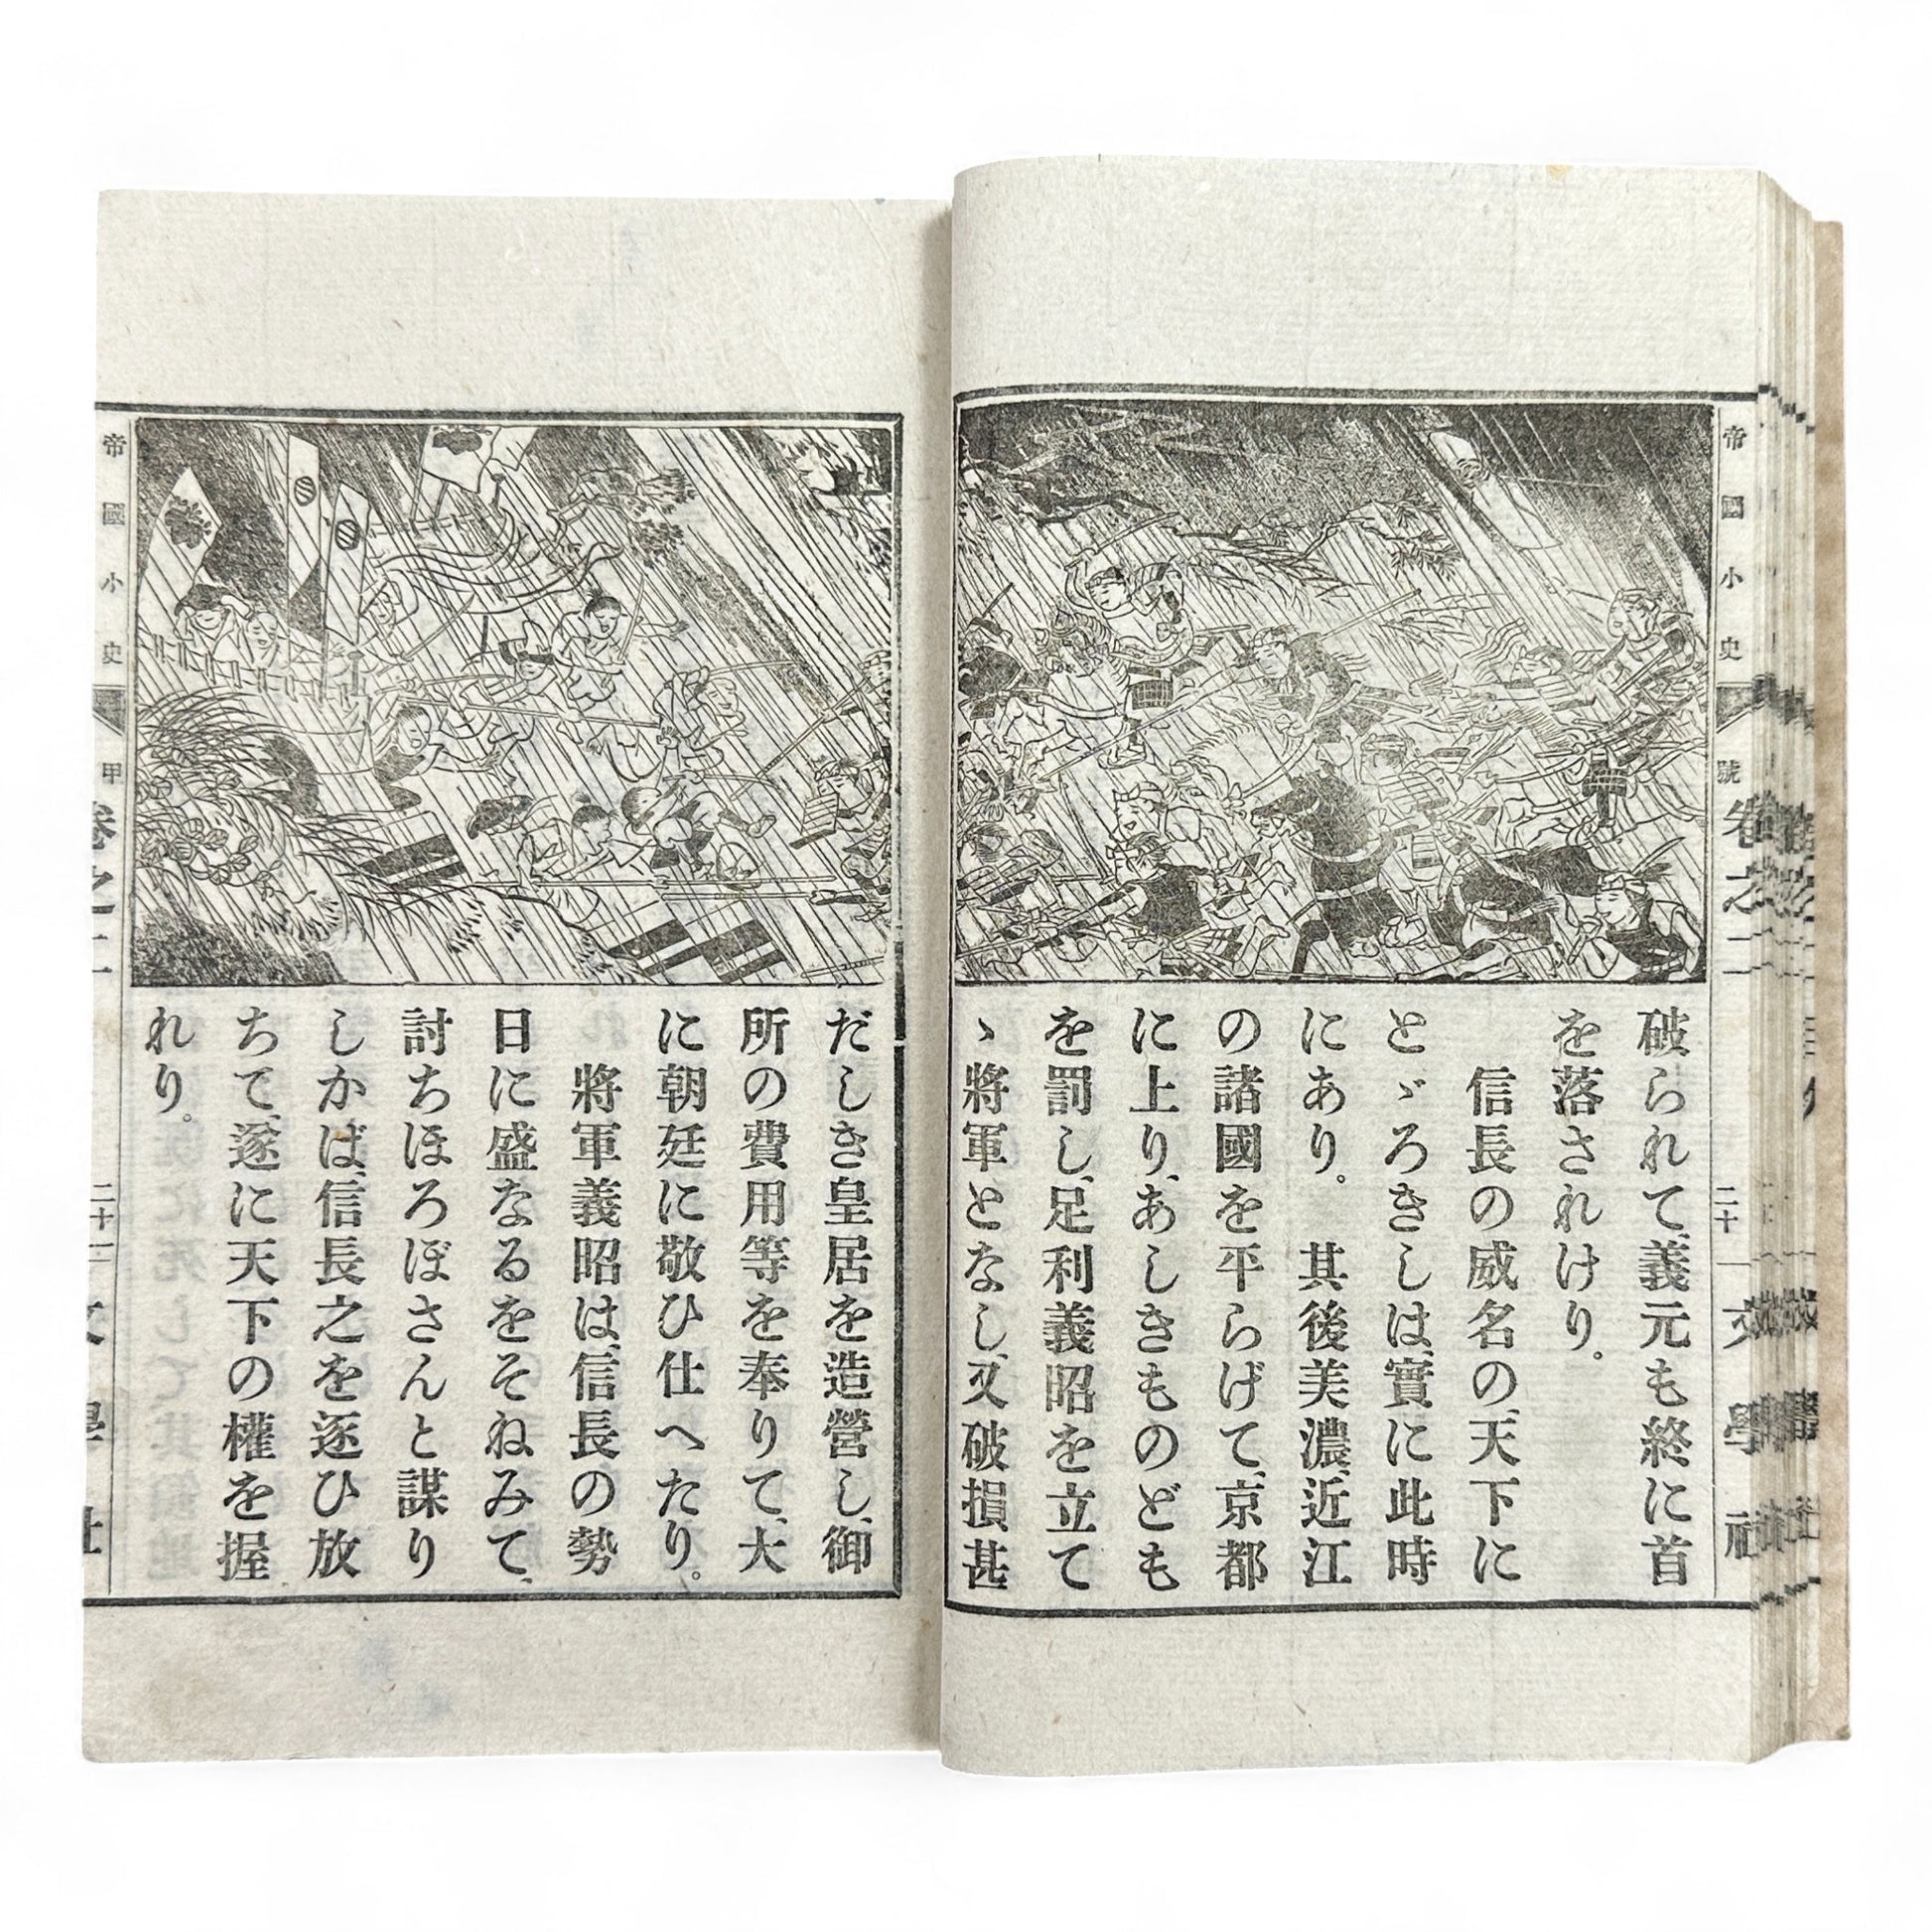 帝國小史
號
卷之二
二十
文學社
破られて、義元も終に首
を落されけり。
信長の威名の、天下に
とゞろきしは、實に此時
にあり。其後美濃、近江
の諸國を平らげて、京都
に上り、あしきものども
を罰し、足利義昭を立て
ヽ將軍となし、又破損甚
だしき皇居を造營し、御
所の費用等を奉りて、大
に朝廷に敬ひ仕へたり。
將軍義昭は、信長の勢
日に盛なるをそねみて、
討ちほろぼさんと謀り
しかば、信長之を逐ひ放
ちて、遂に天下の權を握
れり。
帝國小史
甲
卷之二
文學社